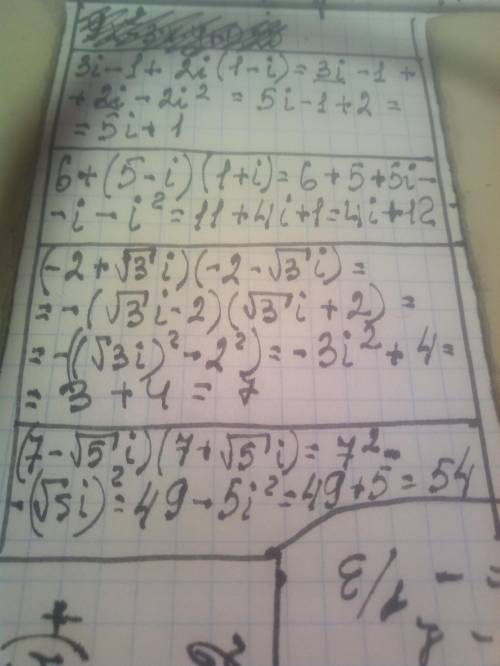 3i-1+2i(1-i)=3i-1+
+2i-2i²=5i-1+2=
=5i+1
6+(5-i)(1+i)=6+5+5i-
-i-i²=11+4i+1=4i+12
(-2+√3i)(-2-√3i)=
=-(√3i-2)(√3i+2)=
=-((√3i)²-2²)=-3i²+4=
=3+4=7
(7-√5i)(7+√5i)=7²-
-(√5i)²=49-5i²=49+5=54